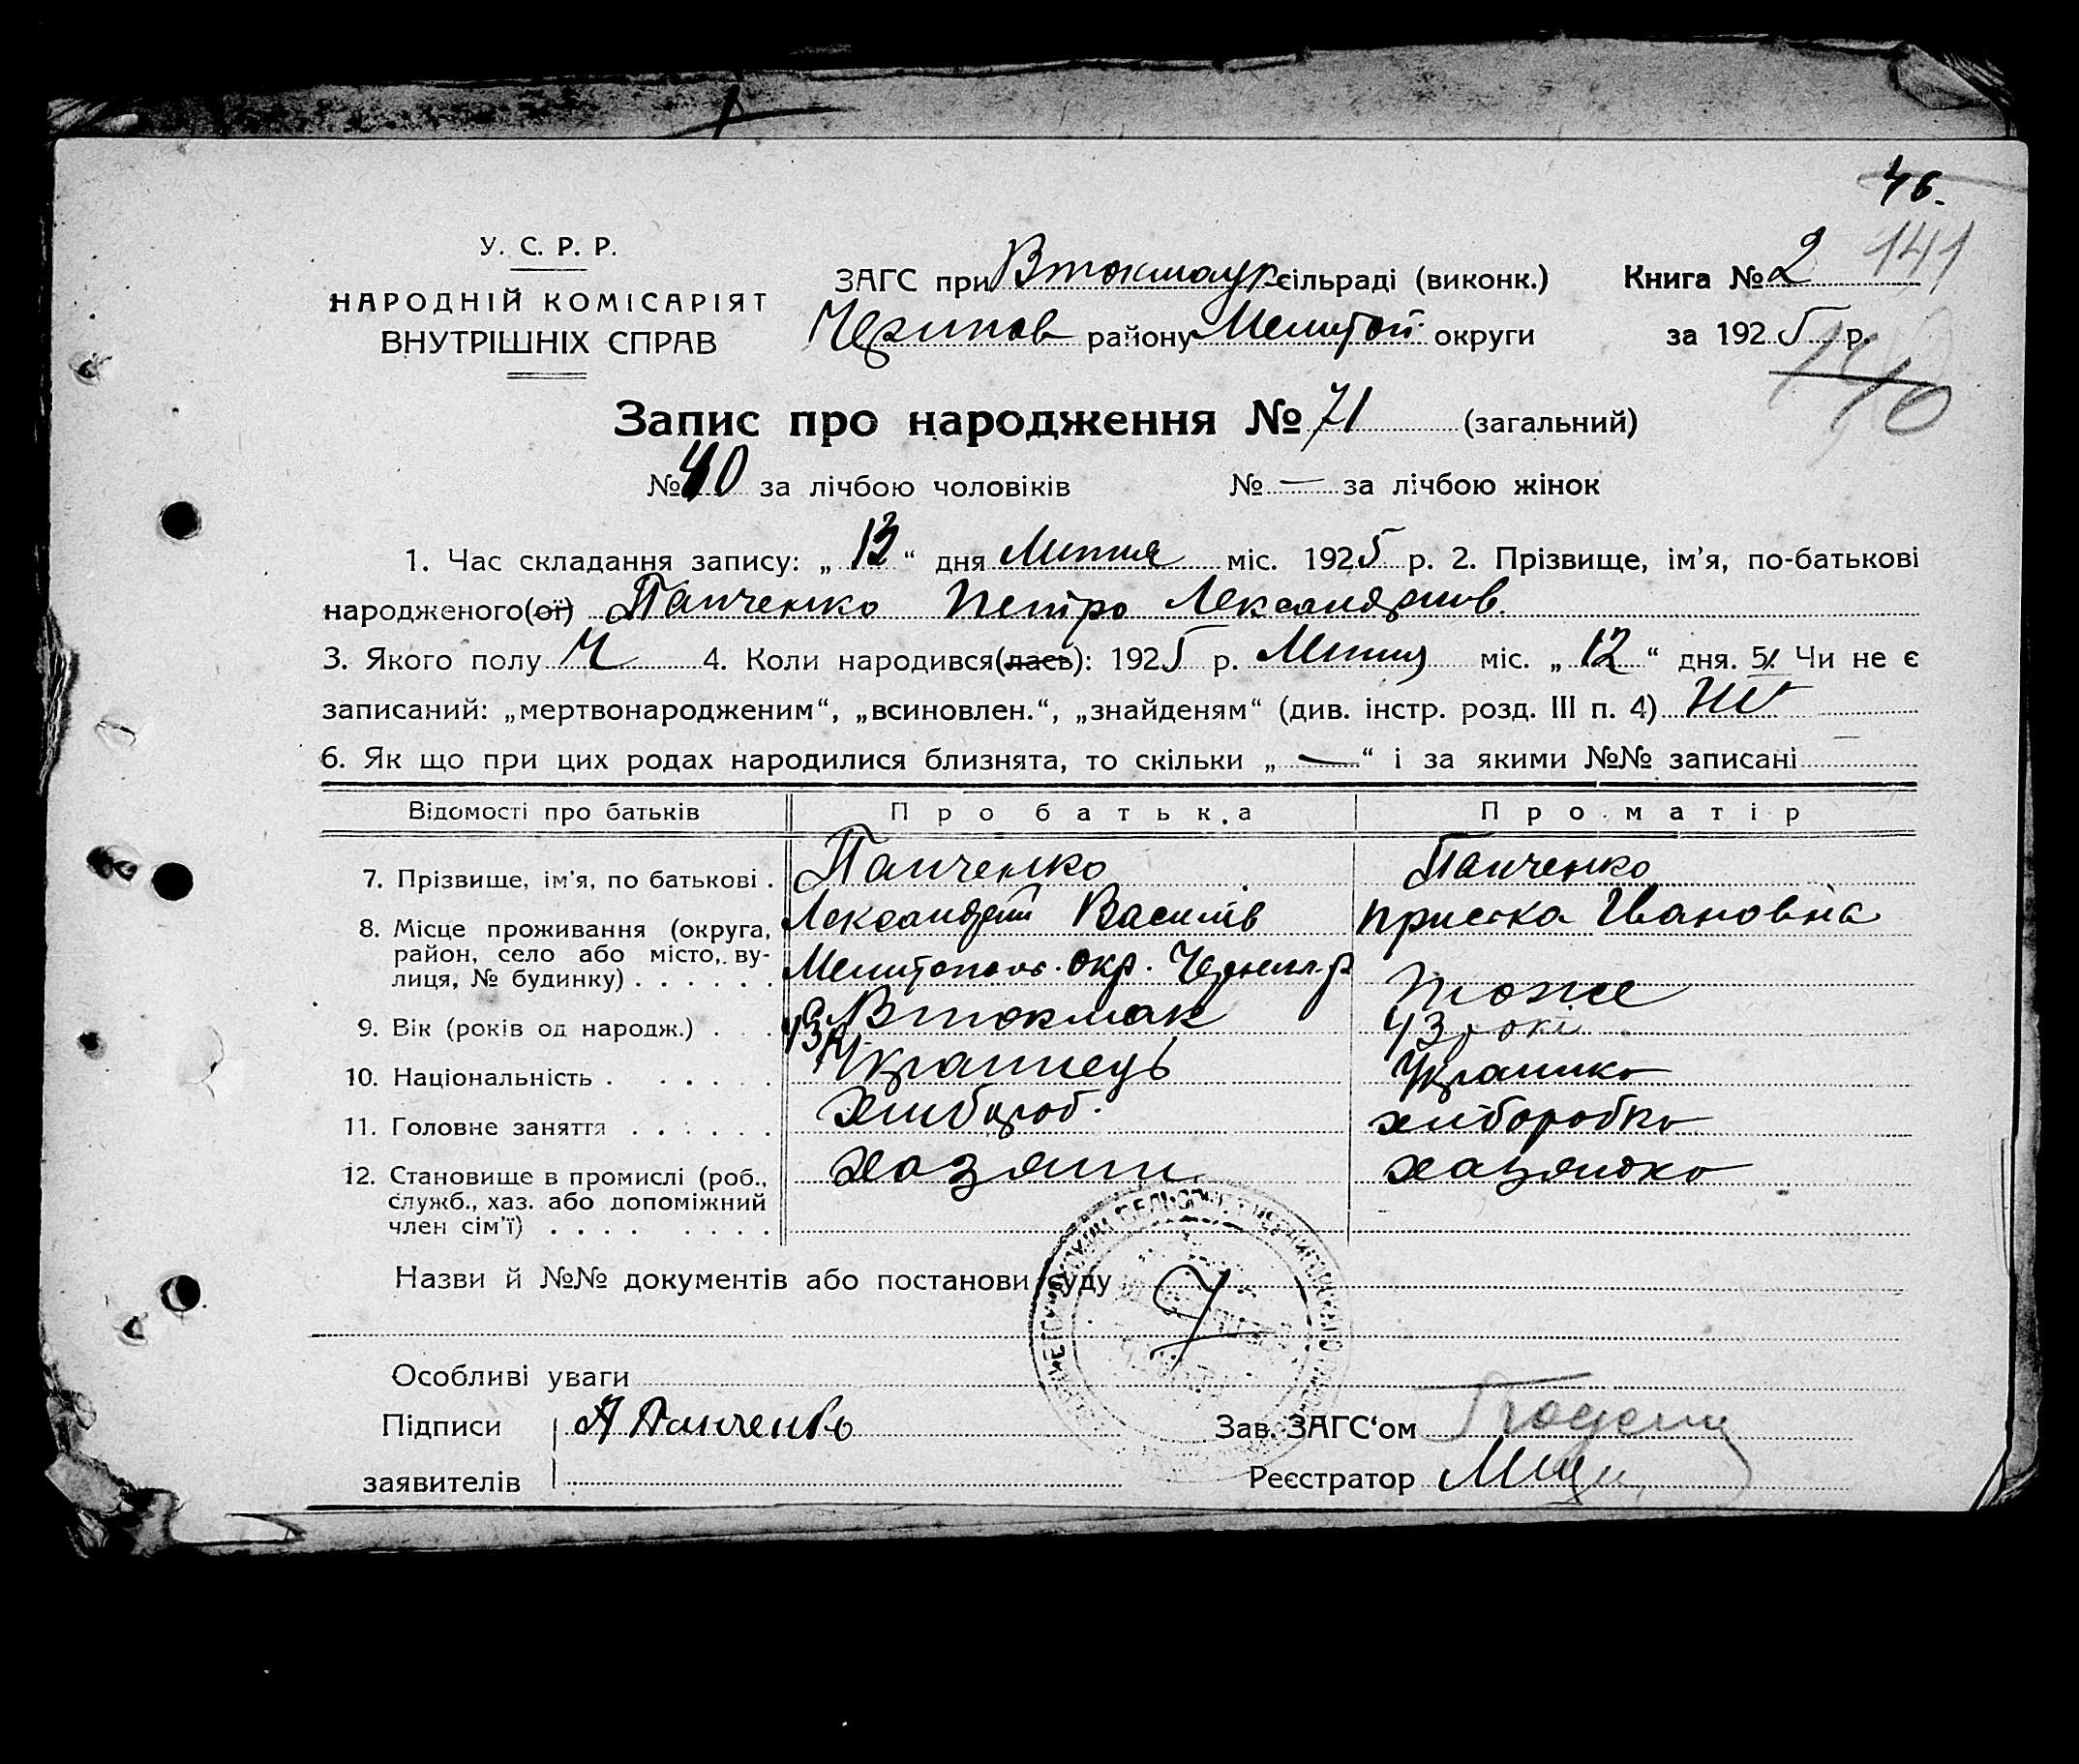 46.
У. С. Р. Р.
НАРОДНІЙ КОМІСАРІЯТ
ВНУТРІШНІХ СПРАВ
ЗАГС при Втокмаур сільраді (виконк.)
району Мелитоп. округи
Книга № 2 141
за 1925 р.
140
Запис про народження № 71 (загальний)
№ 40 за лічбою чоловіків № — за лічбою жінок
1. Час складання запису: „ 13 “ дня Липня міс. 1925 р. 2. Прізвище, ім’я, по-батькові
народженого(ої) Панченко Петро Лександров.
3. Якого полу Ч 4. Коли народився(лась): 1925 р. Липня міс. „ 12 “ дня. 5. Чи не є
записаний: „мертвонародженим“, „всиновлен.“, „знайденям“ (див. інстр. розд. III п. 4) Ні
6. Як що при цих родах народилися близнята, то скільки „ — “ і за якими №№ записані
Відомості про батьків Про батька Про матір
7. Прізвище, ім’я, по батькові . Панченко Панченко
Лександр Василів Приська Ивановна
8. Місце проживання (округа,
район, село або місто, ву-
лиця, № будинку) . . . . . . Мелитополь. окр. р. тоже
с Втокмак
9. Вік (років од народж.) . . . 43 р. 43 рокі
10. Національність . . . . . . Украинець Украинка
11. Головне заняття . . . . . . хлибороб. хлиборобка
12. Становище в промислі (роб.,
служб., хаз. або допоміжний
член сім’ї) . . . . . . . . хазяин хазяйка
Назви й №№ документів або постанови суду
Особливі уваги
Підписи А Панченко Зав. ЗАГС‘ом
заявителів Реєстратор